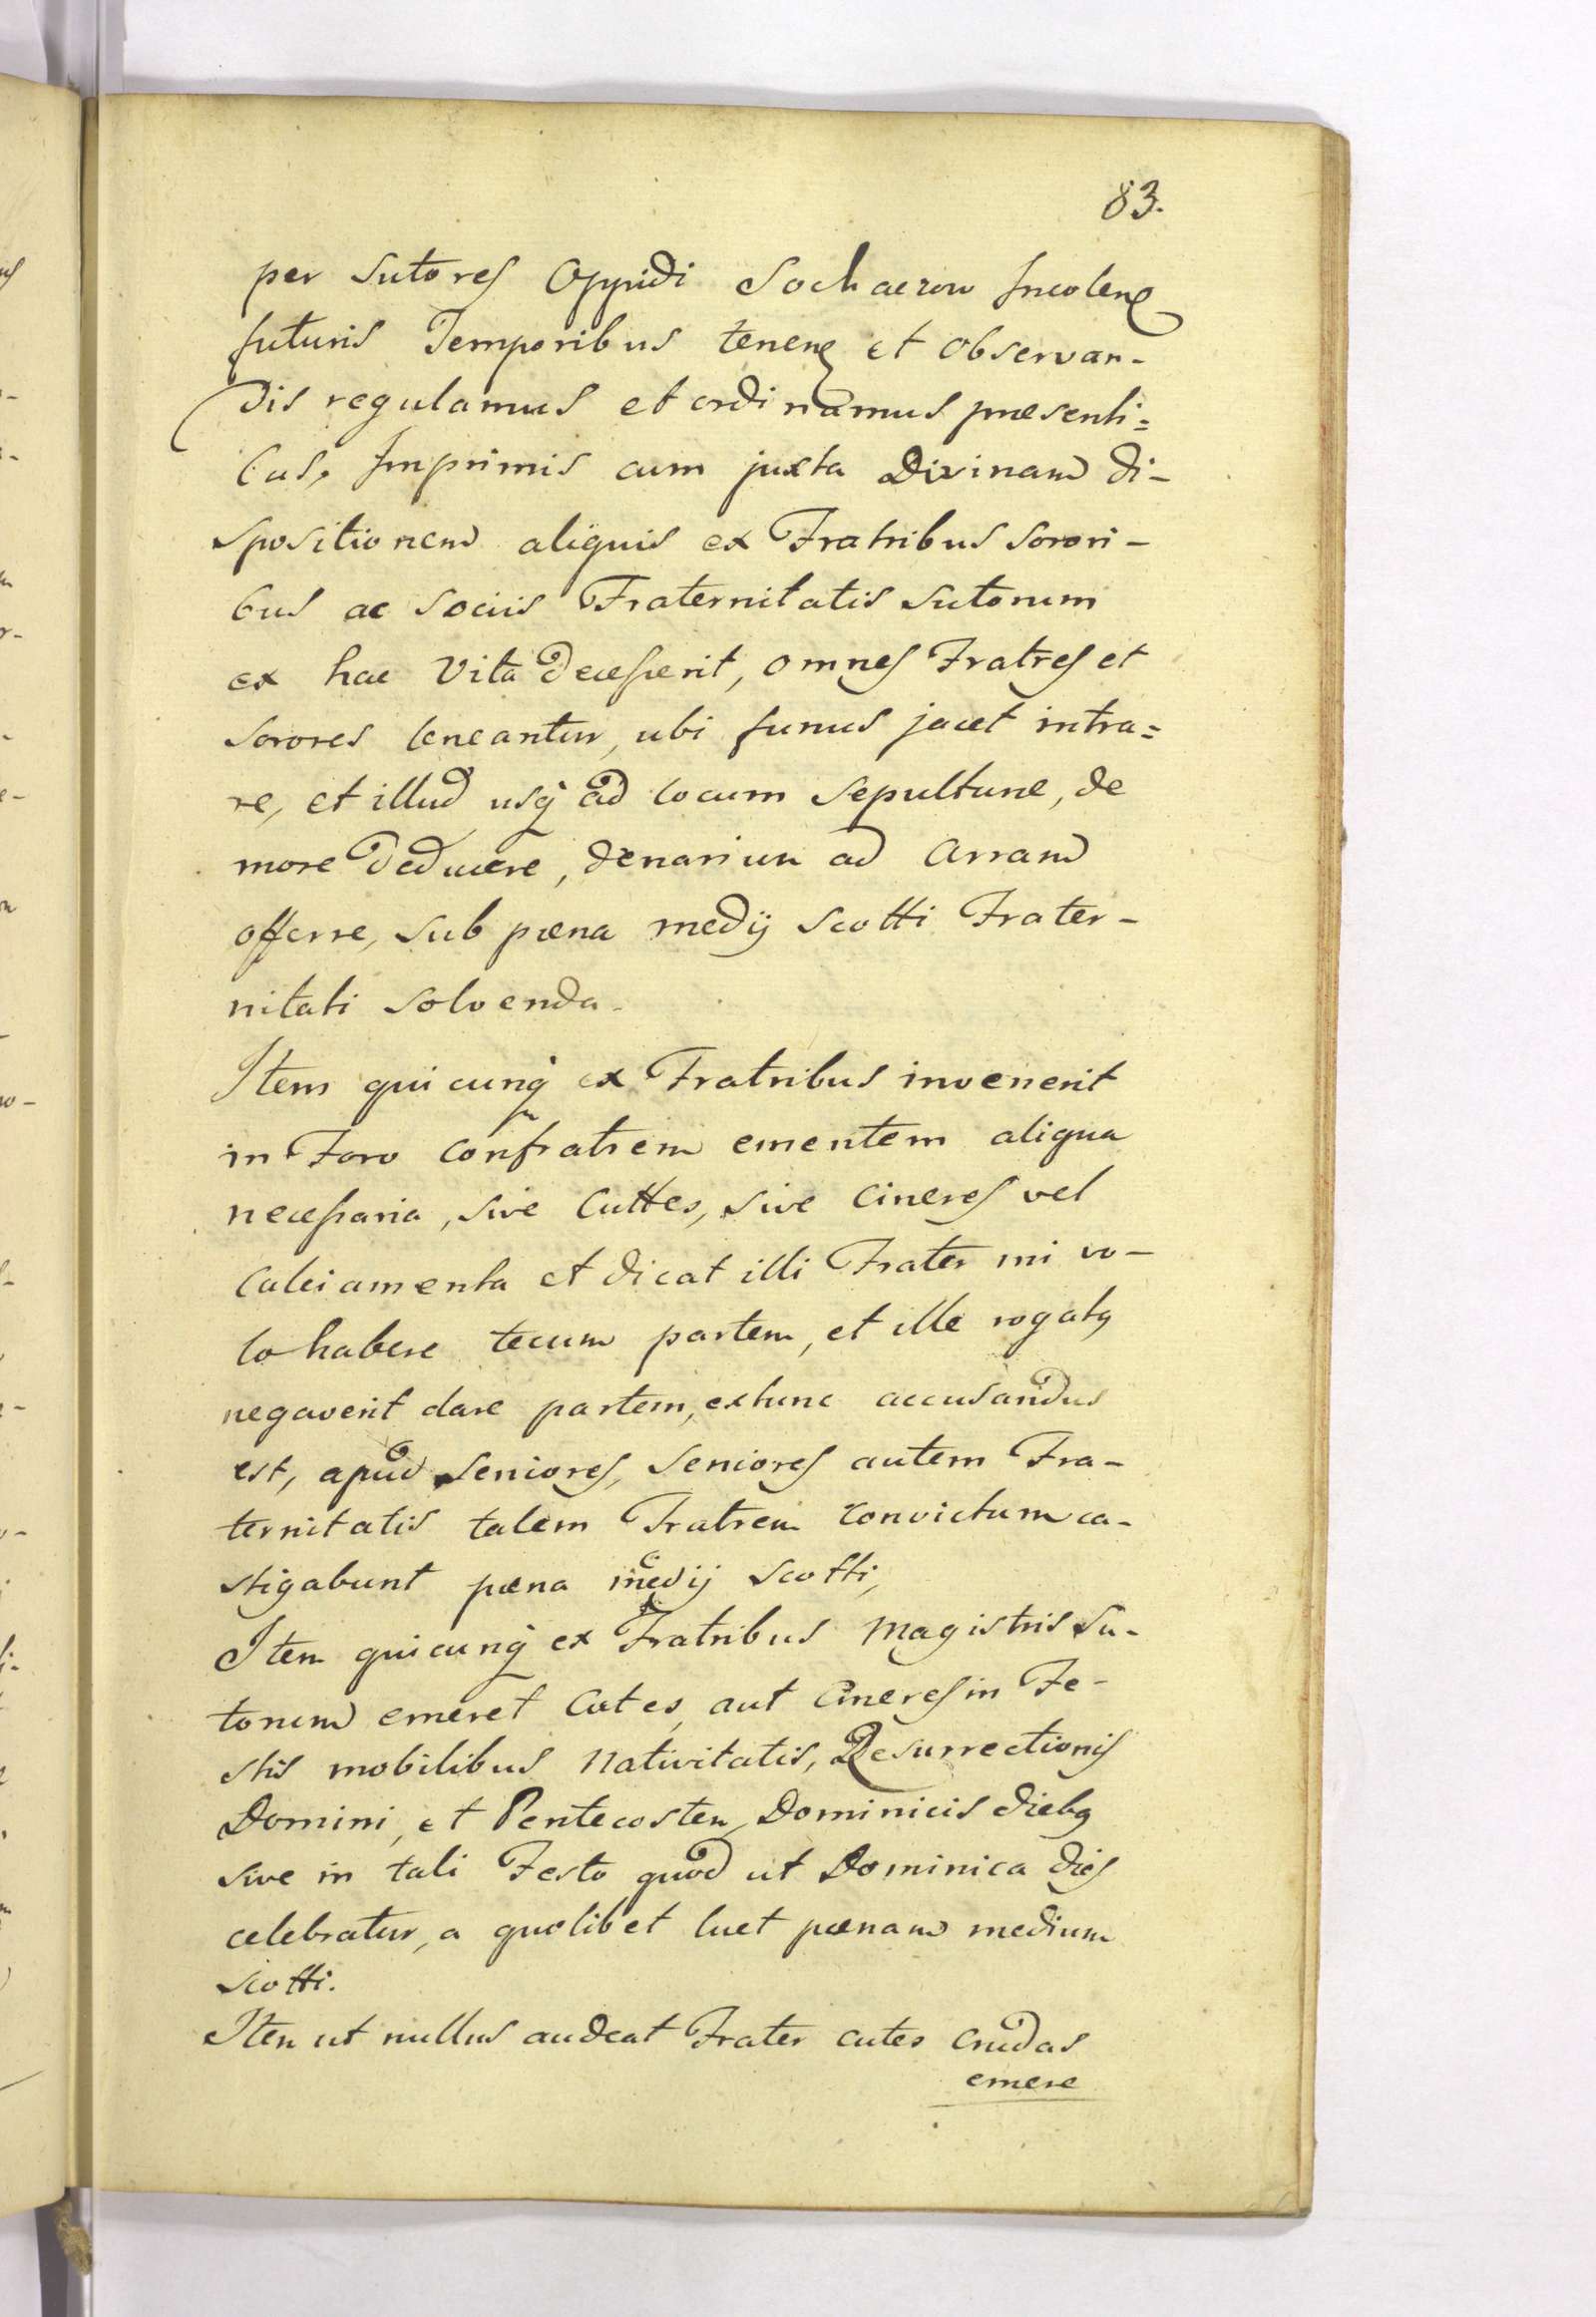 83.
per Sutores Oppidi Sochaczow Incolen
futuris Temporibus tenen et observan-
dis regulamus et ordinamus præsenti=
bus, Imprimis cum juxta Divinam di-
spositionem aliquis ex Fratribus Sorori-
bus ac Sociis Fraternitatis Sutorum
ex hac Vita decesserit, omnes Fratres et
Sorores teneantur, ubi funus jacet intra=
re, et illud usq ad locum Sepulturæ, de
more deducere, denarium ad Arram
offerre, sub pœna medij Scotti Frater-
nitati Solvenda.
Item quicunq ex Fratribus invenerit
in Foro confratrem ementem aliqua
necessaria, sive Cuttes, sive Cineres vel
Calciamenta et dicat illi Frater mi vo-
lo habere tecum partem, et ille rogatus
negaverit dare partem, extunc accusandus
est, apud Seniores, Seniores autem Fra-
ternitatis talem Fratrem convictum ca-
stigabunt pœna medij Scotti,
Item quicunq ex Fratribus Magistris Su-
torum emeret Cutes, aut Cineres in Fe-
stis mobilibus Nativitatis, Resurrectionis
Domini, et Pentecosten, Dominicis diebus
sive in tali Festo quod ut Dominica dies
celebratur, a quolibet luet pœnam medium
Scotti.
Item ut nullus audeat Frater cutes crudas
emere